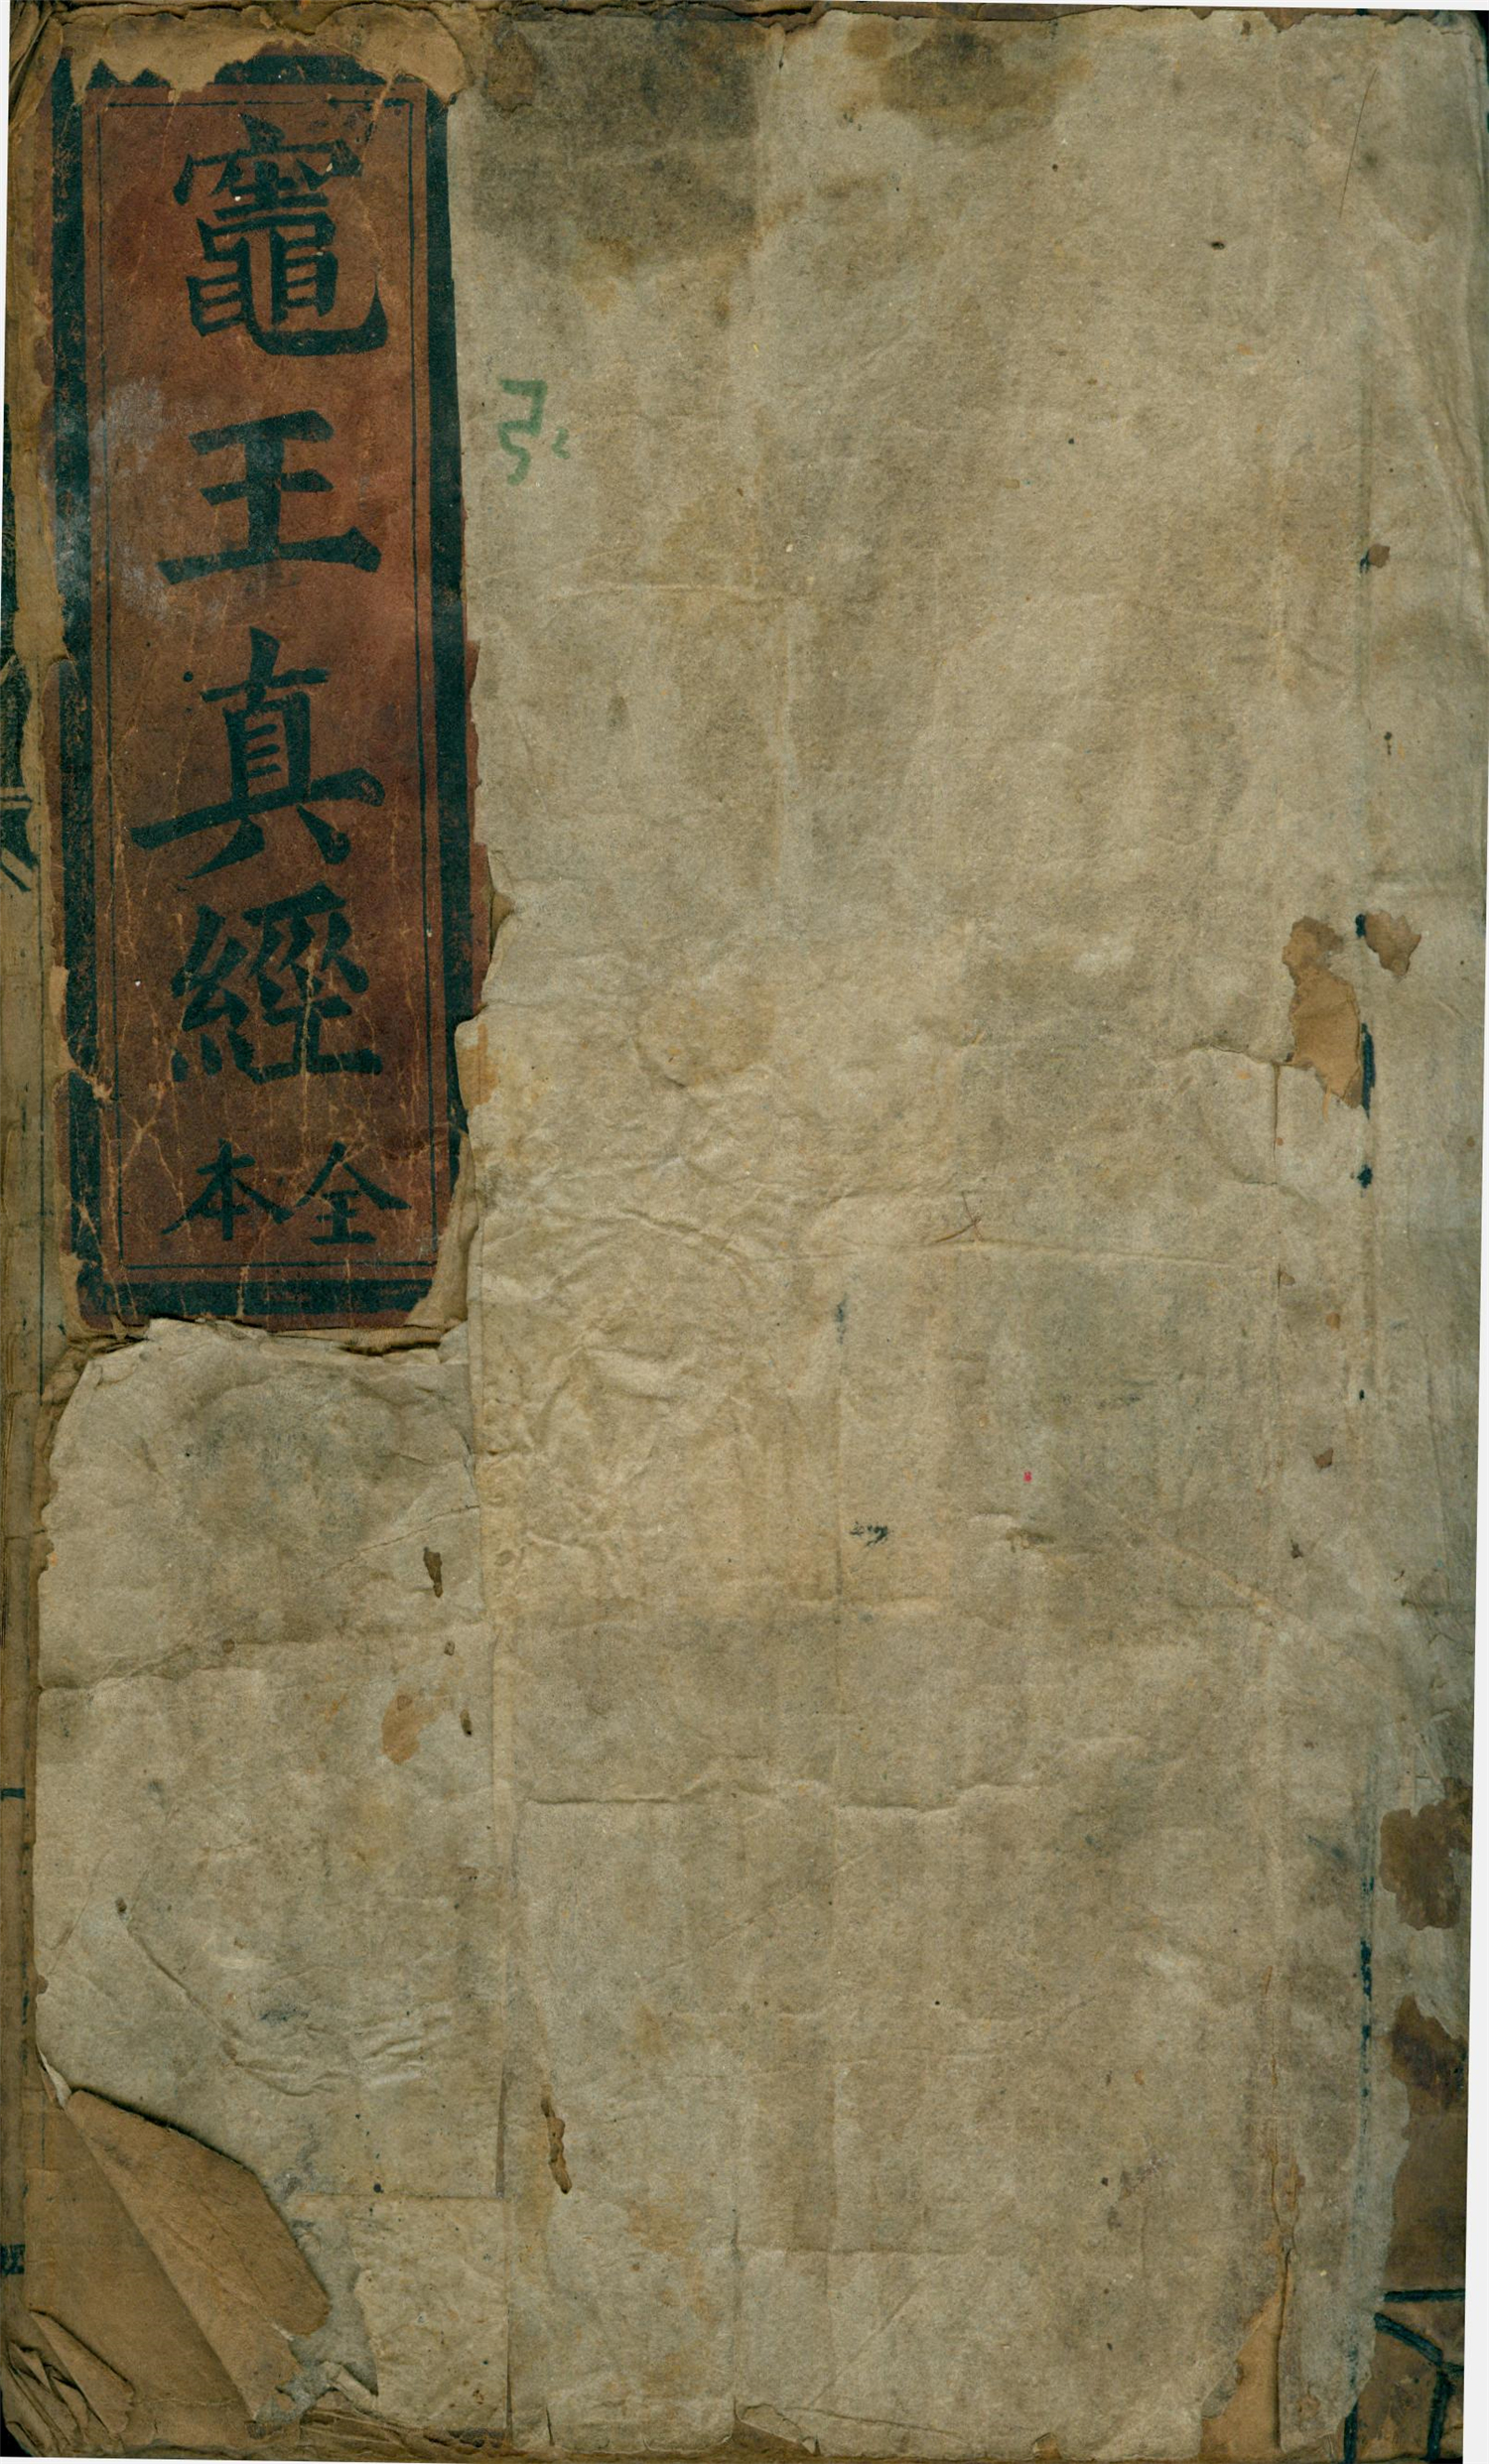 竈王真經
全本